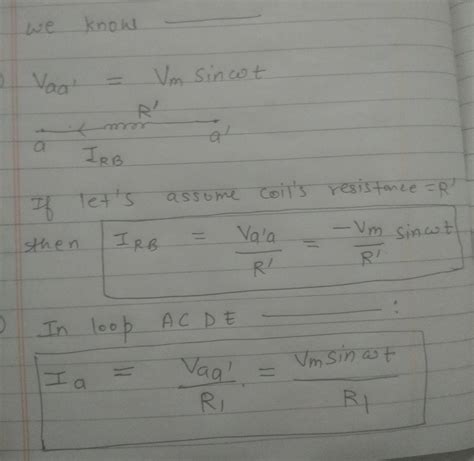 we know
) Vaa' = Vm sinωt
R'
a a'
I RB
If let's assume coil's resistance = R'
then I RB = Va'a / R' = -Vm / R' sinωt
) In loop ACDE :
Ia = Vaa' / R1 = Vm sinωt / R1